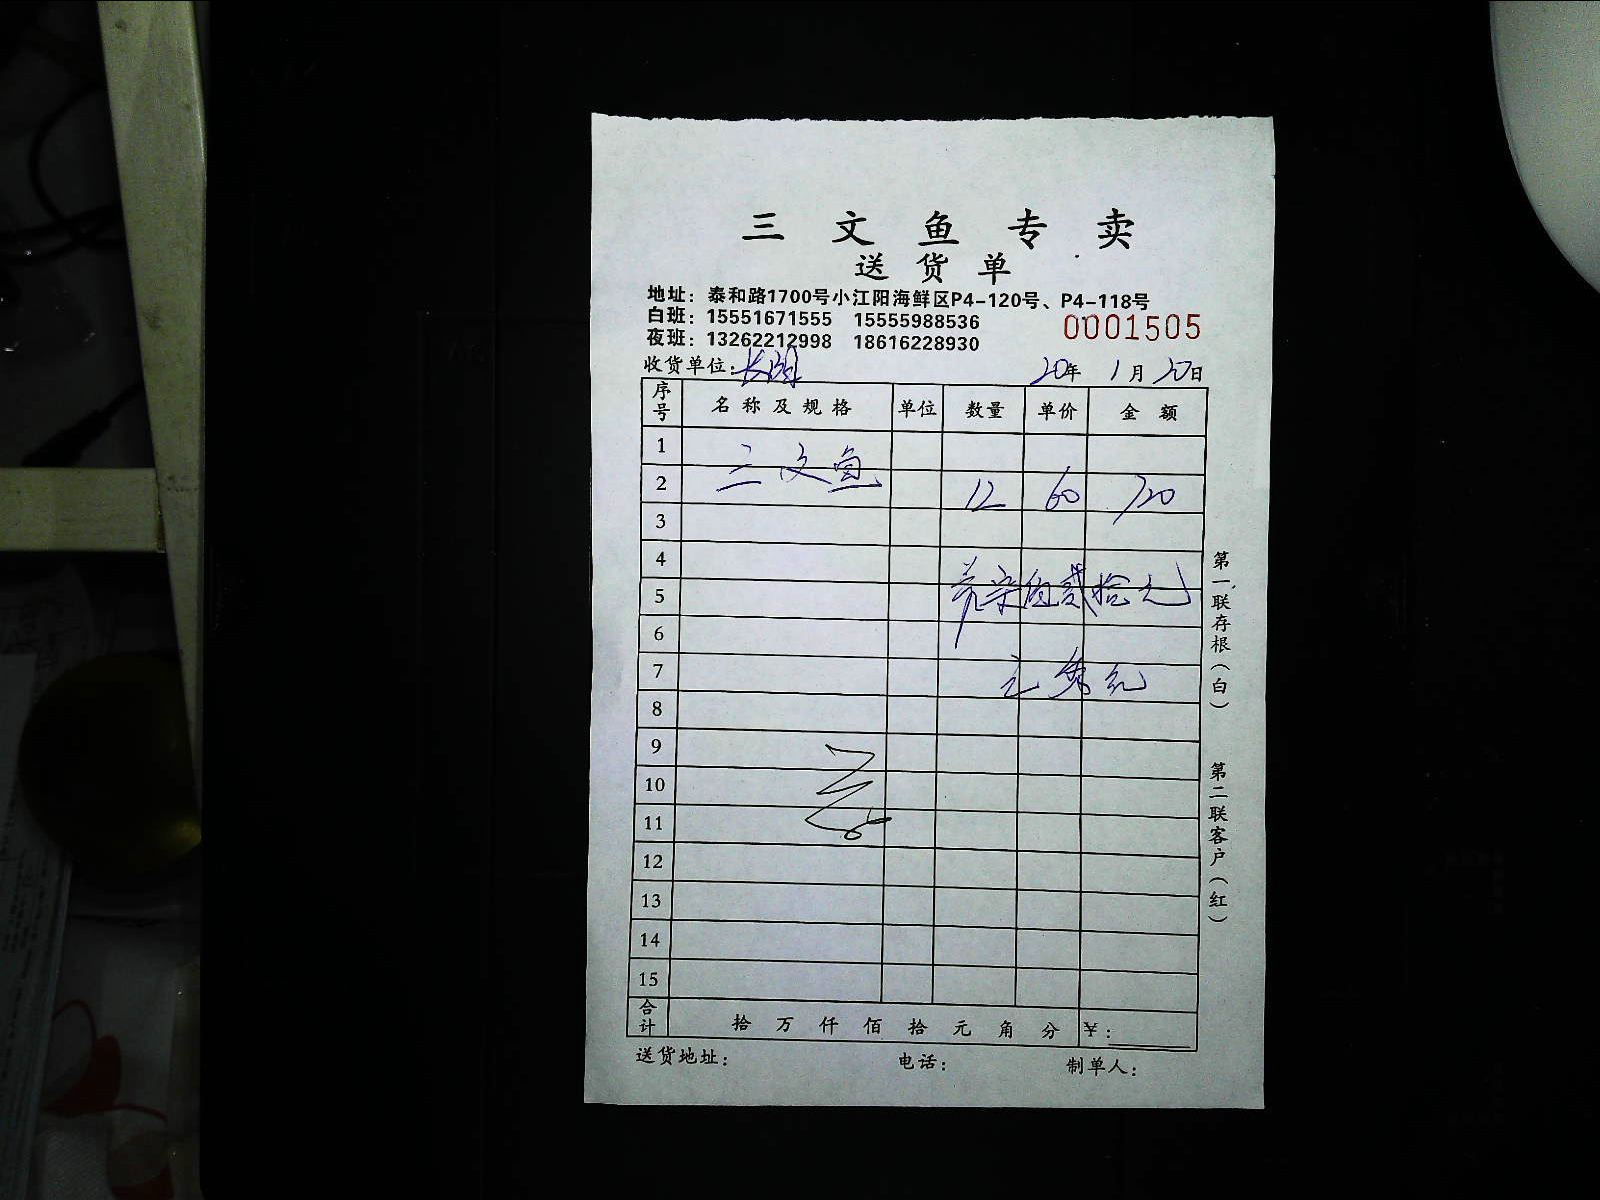 三文鱼专卖
送货单
地址：泰和路1700号小江阳海鲜区P4-120号、P4-118号
白班：15551671555 15555988536
夜班：13262212998 18616228930
0001505
收货单位： 20年 1月 20日
序号 名称及规格 单位 数量 单价 金额
1
三文鱼
2 12 60 720
3
4
5 柒佰贰拾元
6
7
8
9
10
11
12
13
14
15
合计 拾 万 仟 佰 拾 元 角 分 ￥：
送货地址： 电话： 制单人：
第一联存根（白）
第二联客户（红）